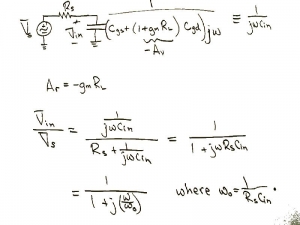 Rs
V̄s
+
V̄in
-
1 / (Cgs + (1+gmRL) Cgd) jω ≡ 1 / jωCin
-Av
Av = -gmRL
V̄in / V̄s = (1 / jωCin) / (Rs + 1 / jωCin) = 1 / (1 + jωRsCin)
= 1 / (1 + j(ω/ω₀)) where ω₀ = 1 / RsCin .